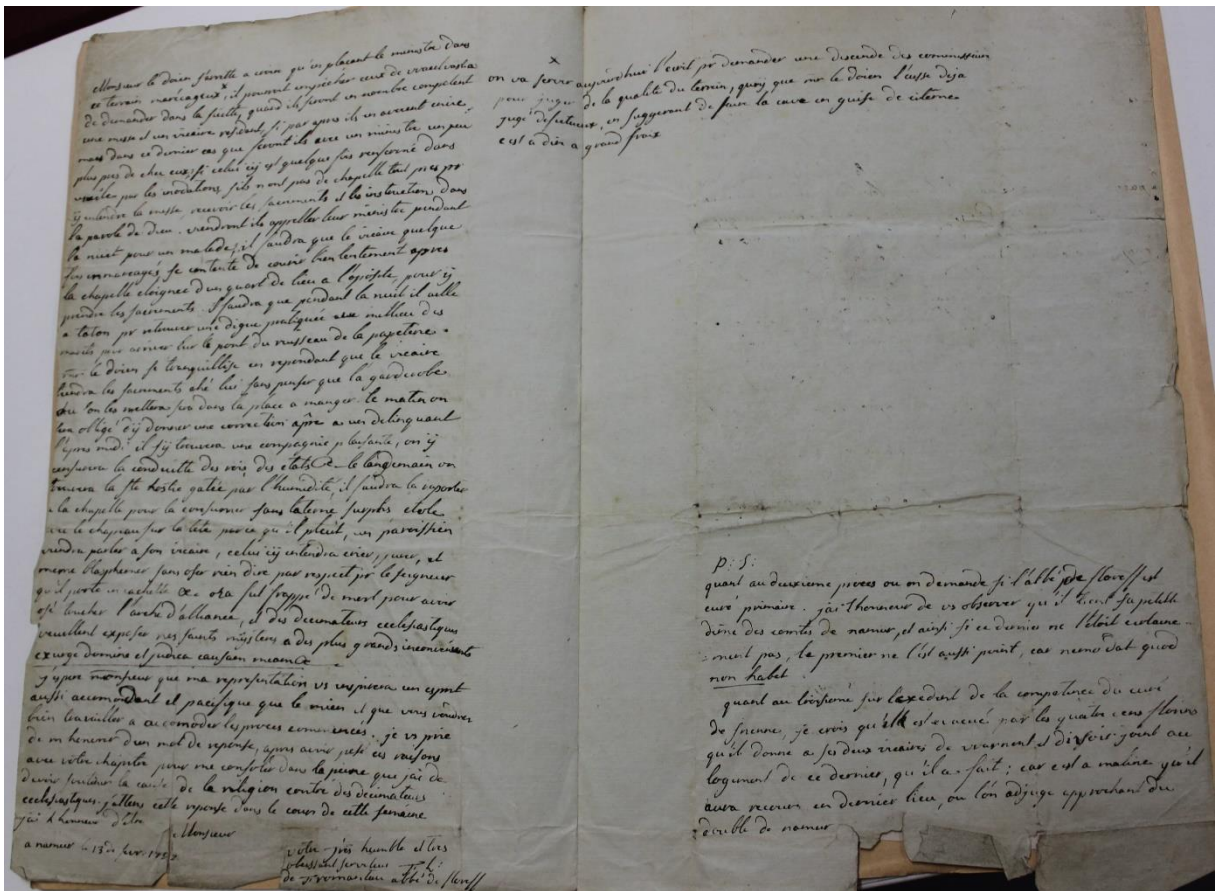 Monsieur le doien favrille a voulu qu'en placant le ministre dans
ce terrain marécageux x, il pourroit empêcher ceux de
de demander dans la suitte, quand ils seront un nombre compétent
une messe et un vicaire résident, si par apres ils en avoient envie.
mais dans ce dernier cas que feront ils avec un ministre un peu
plus pres de chez eux; si celui cÿ est quelque fois renfermé dans
par les inodations, s'ils n'ont pas de chapelle tout pres pr
ÿ entendre la messe recevoir les sacrements et les instructions dans
la parole de Dieu. viendront ils appeller leur ministre pendant
la nuit pour un malade; il faudra que le vicaire quelque
fois se contente de courir bien lentement apres
la chapelle eloignee d'un quart de lieu a l'oposite, pour ÿ
prendre les sacrements. Il faudra que pendant la nuit il aille
a taton pr retrouver une digue pratiquée au millieu des
marais pour arriver sur le pont du ruisseau de la papeterie.
le doien se tranquillise en repondant que le vicaire
tiendra les sacrements ché lui sans penser que la garderobe
ou l'on les mettera sera dans la place a manger. le matin on
sera obligé d'ÿ donner une correction âpre a un delinquant
l'apres midi il s'ÿ trouvera une compagnie plaisante, on ÿ
censurera la conduitte des rois, des états &c. le lendemain on
trouvera la ste hostie gatée par l'humidité, il faudra la reporter
a la chapelle pour la consumer sans laterne surplis etole
le chapeau sur la tete parce qu'il pleut, un paroissien
viendra parler a son vicaire, celui cÿ entendra crier, jurer, et
meme blasphemer sans oser rien dire par respect pr le seigneur
qu'il porte en cachette &c. oza fut frappé de mort pour avoir
osé toucher l'arche d'alliance, et des decimateurs ecclesiastiques
veuillent exposer nos saints mistères a des plus grands inconvénients
exurge domine et judica causam meam &c
j'éspere monsieur que ma representation vs inspirera un esprit
aussi accomondant et pacifique que le mien et que vous voudrez
bien travailler a accomoder les proces commencés. je vs prie
de m'honorer d'un mot de reponse, apres avoir pesé ces raisons
avec votre chapitre pour me consoler dans la peine que j'ai de
devoir soutenir la cause de la religion contre des decimateurs
ecclesiastiques. j'attens cette reponse dans le cours de cette semaine
j'ai l'honneur d'être
Monsieur
a namur le 13 de
votre très humble et tres
obeissant serviteur
de abbé de floreff
x
on va servir aujourdhui l'ecrit pr demander une descende des commissaires
pour juger de la qualité du terrain, quoÿ que mr le doien l'eusse deja
jugé défectueux, en suggerant de faire la cave en guise de citerne
c'est a dire a grand fraix
P: S:
quant au deuxieme proces ou on demande si l'abbé de floreff est
curé primaire. j'ai l'honneur de vs observer qu'il tient sa petitte
dîme des comtes de namur, et ainsi si ce dernier ne l'étoit certaine-
-ment pas, le premier ne l'est aussi point, car nemo dat quod
non habet.
quant au troisieme sur l'exedent de la competence du curé
de je crois qu'elle est par les quatre cens florins
qu'il donne a ses deux vicaires de et joint au
logement de ce dernier, qu'il a fait; car c'est a maline qu'il
aura recours en dernier lieu, ou l'on adjuge approchant du
double de namur